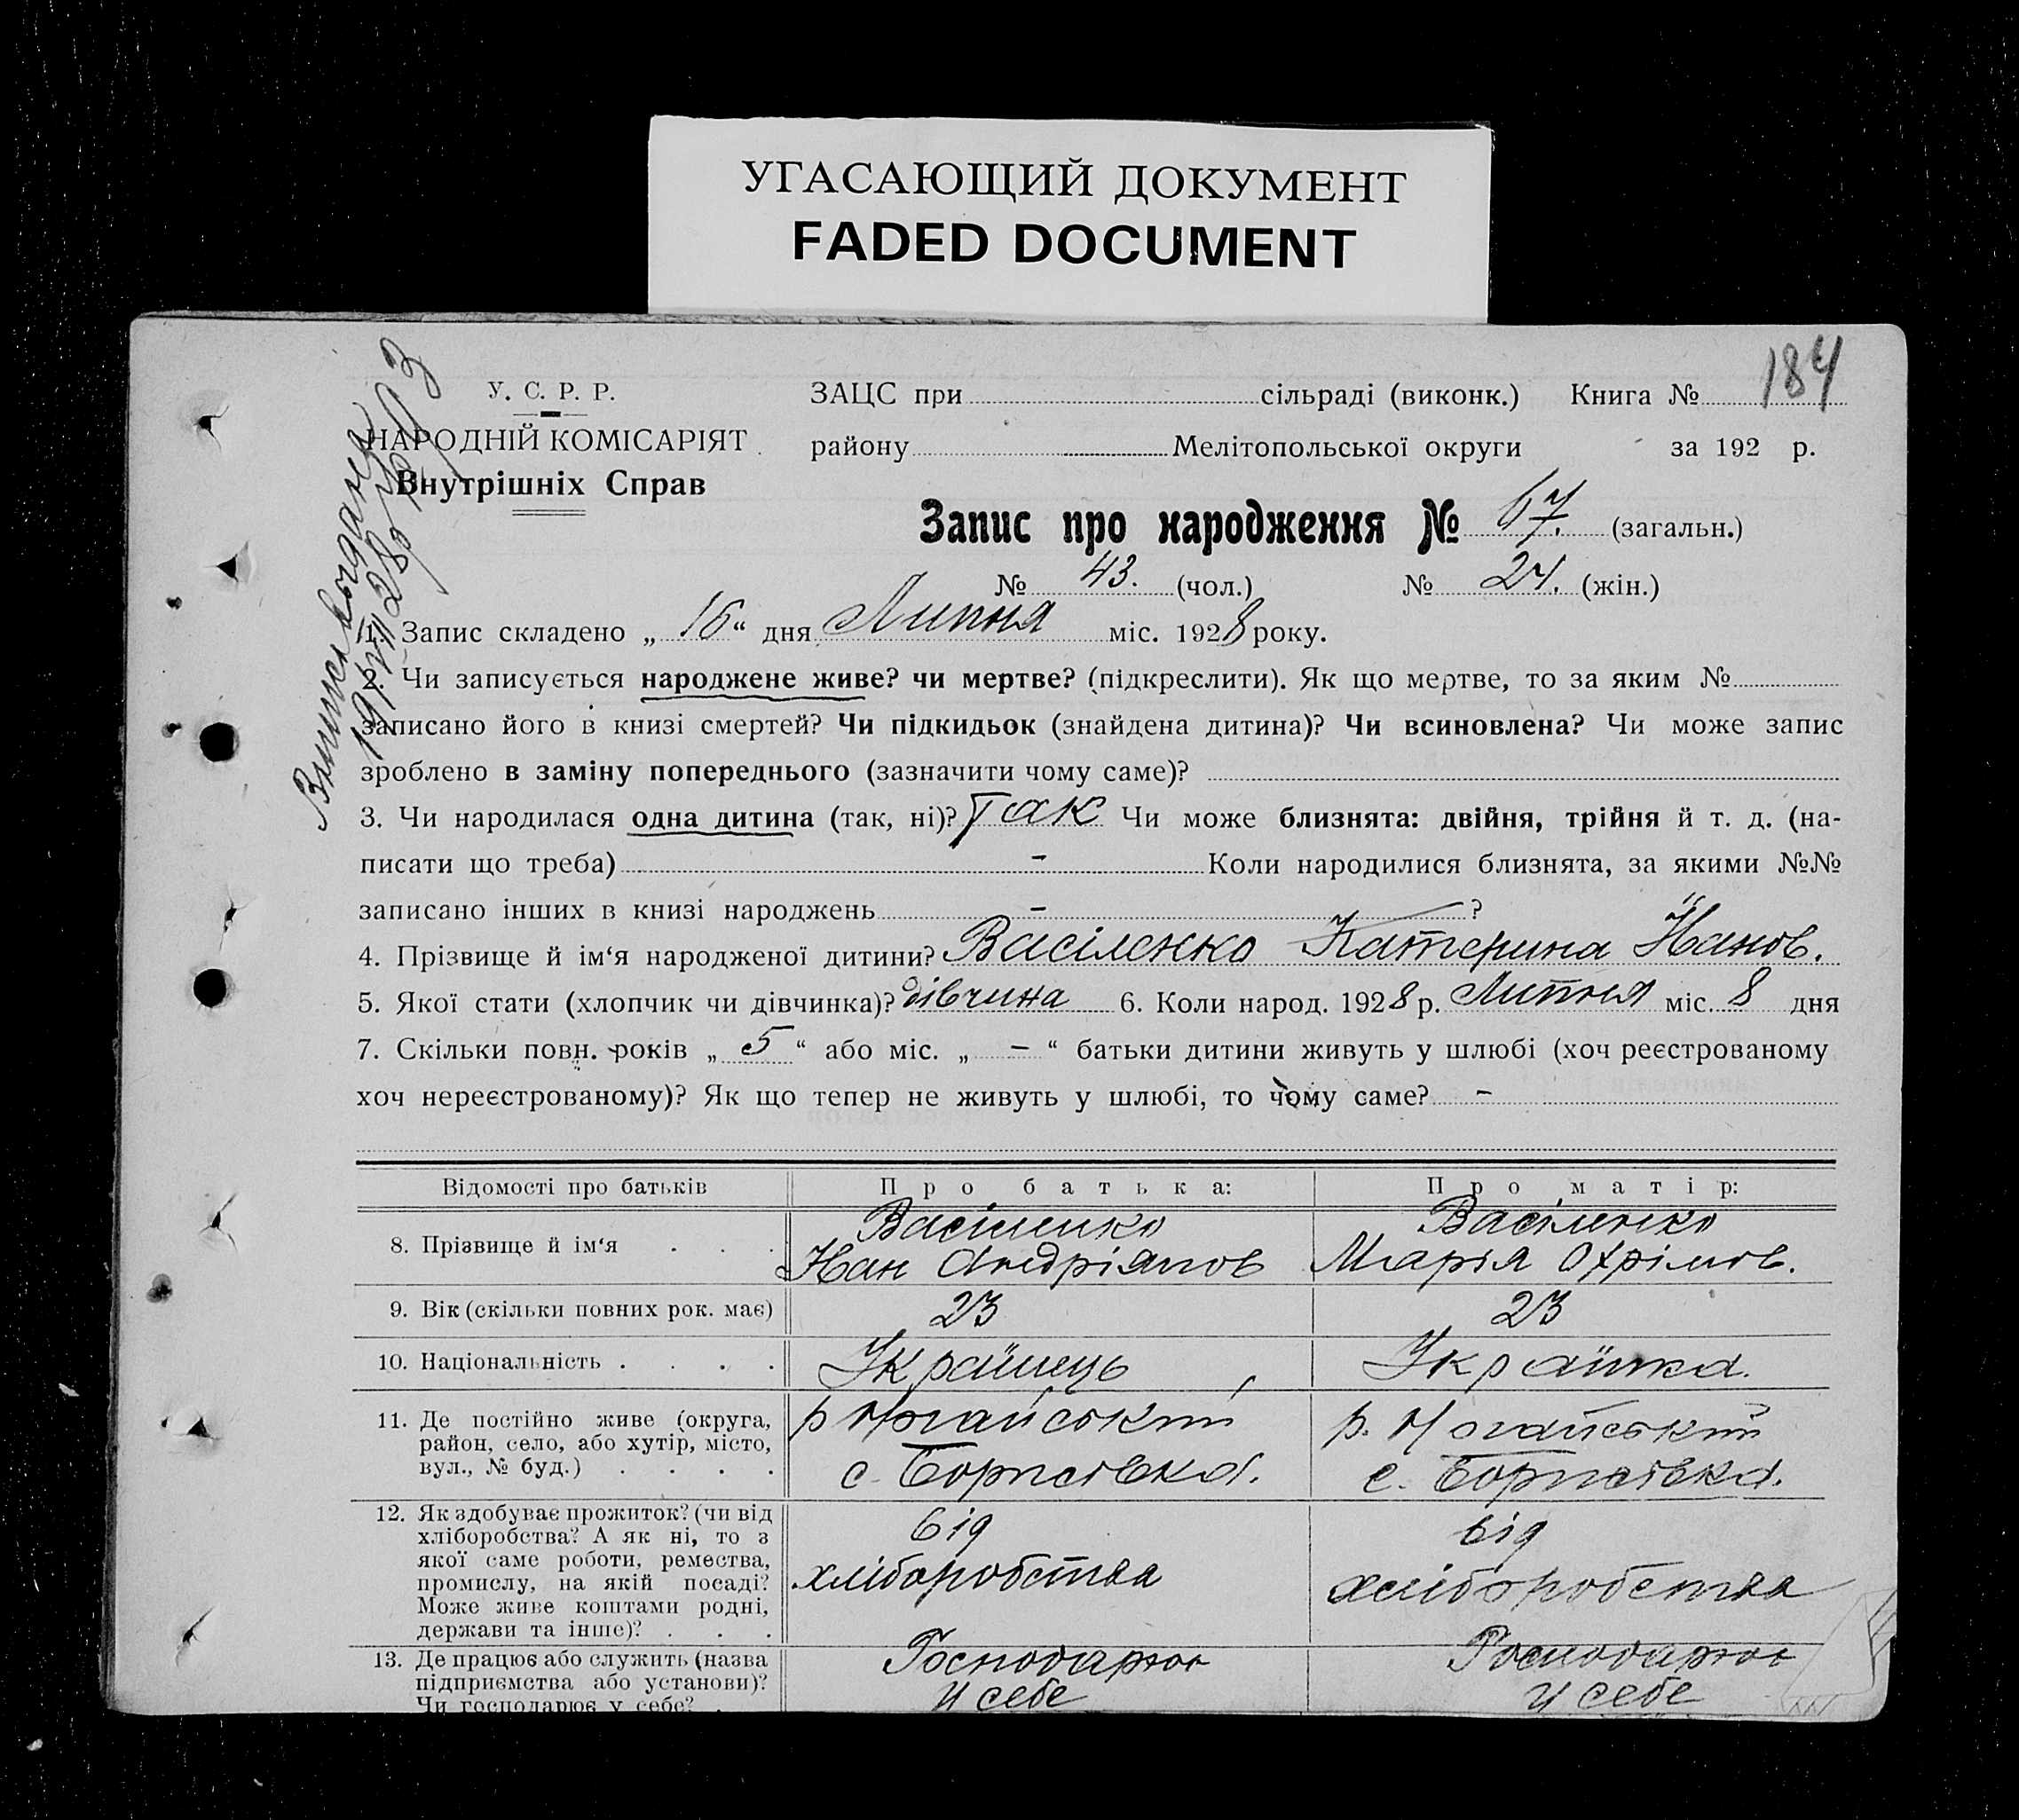 УГАСАЮЩИЙ ДОКУМЕНТ
FADED DOCUMENT
184
У. С. Р. Р.
НАРОДНІЙ КОМІСАРІЯТ
Внутрішніх Справ
ЗАЦС при сільраді (виконк.) Книга №
району Мелітопольської округи за 192 р.
Запис про народження № 67. (загальн.)
№ 43. (чол.) № 24. (жін.)
1. Запис складено „ 16 “ дня Липня міс. 1928 року.
2. Чи записується народжене живе? чи мертве? (підкреслити). Як що мертве, то за яким №
записано його в книзі смертей? Чи підкидьок (знайдена дитина)? Чи всиновлена? Чи може запис
зроблено в заміну попереднього (зазначити чому саме)?
3. Чи народилася одна дитина (так, ні)? Так Чи може близнята: двійня, трійня й т. д. (на-
писати що треба) – Коли народилися близнята, за якими №№
записано інших в книзі народжень – ?
4. Прізвище й ім‘я народженої дитини? Васіленко Катерина Іванов.
5. Якої стати (хлопчик чи дівчинка)? дівчина 6. Коли народ. 1928 р. Липня міс. 8 дня
7. Скільки повн. років „ 5 “ або міс. „ – “ батьки дитини живуть у шлюбі (хоч реєстрованому
хоч нереєстрованому)? Як що тепер не живуть у шлюбі, то чому саме? –
Відомості про батьків Про батька: Про матір:
8. Прізвище й ім‘я . . . Васіленко Іван Андріянов Васіленко Марія Охрімов.
9. Вік (скільки повних рок. має) 23 23
10. Національність . . . . Українець Українка.
11. Де постійно живе (округа,
район, село, або хутір, місто,
вул., № буд.) . . . .
р Ногайський
с. Борисівка.
р. Ногайський
с. Борисівка.
12. Як здобуває прожиток? (чи від
хліборобства? А як ні, то з
якої саме роботи, ремества,
промислу, на якій посаді?
Може живе коштами родні,
держави та інше)? . . .
від
хліборобства
від
хліборобства
13. Де працює або служить (назва
підприємства або установи)?
Чи господарює у себе? .
Господарює
у себе
Господарює
у себе